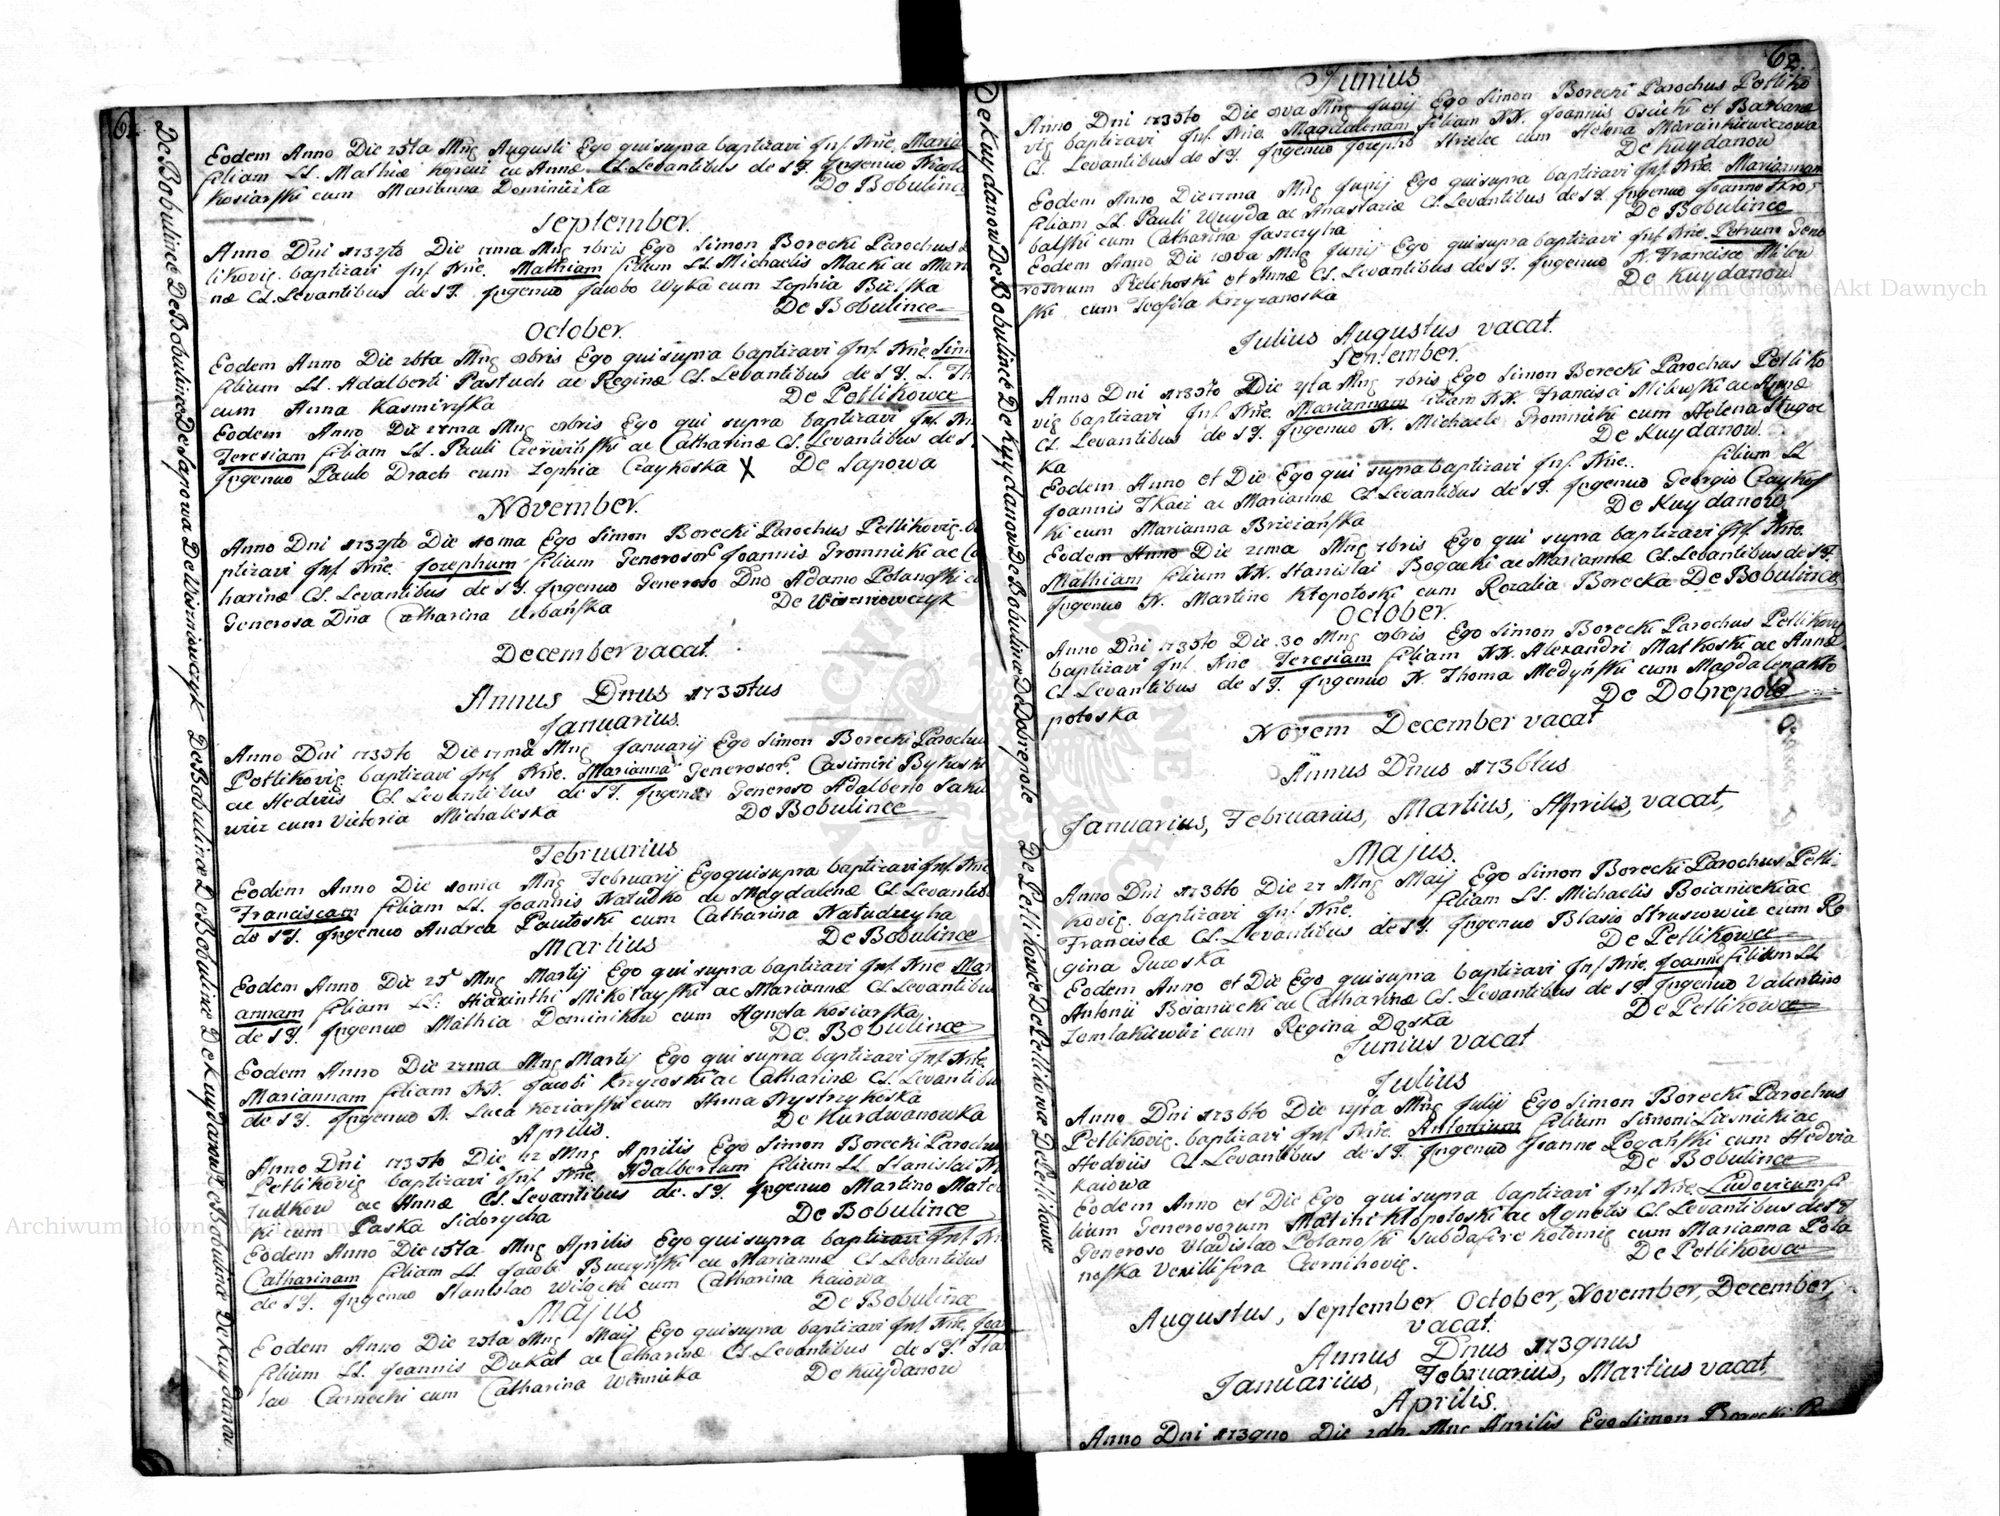 Eodem Anno Die 25ta Mng Augusti Ego qui supra baptizavi Inf. Nne. Maria
filiam LL. Mathiæ cu Annæ CL. Levantibus de S F. Ingenuo
Kosiarski cum Marianna Dominiczka De Bobulince
September.
Anno Dni 1734to Die 17ma Mng 7bris Ego Simon Borecki Parochus
likovig. baptizavi Inf. Nne. Mathiam filium LL. Michaelis Macki ac Mari
næ CL. Levantibus de S F. Ingenuo Jacobo Wyka cum Zophia Bielska
De Bobulince
October.
Eodem Anno Die 26ta Mng 8bris Ego qui supra baptizavi Inf. Nne Sim
filium LL. Adalberti Pastuch ac Reginæ CL. Levantibus de S F. L. Th
cum Anna Kasmirska De Petlikowce
Eodem Anno Die 27ma Mng 8bris Ego qui supra baptizavi Inf. Nn
Teresiam filiam LL. Pauli Czerwinski ac Catharinæ CL. Levantibus de S
Ingenuo Paulo Drach cum Zophia Czaykoska X De Sapowa
November.
Anno Dni 1734to Die 10ma Ego Simon Borecki Parochus Petlikovig. ba
ptizavi Inf. Nne. Josephum filium Generosor. Joannis Gromnicki ac Ca
harinæ CL. Levantibus de S F. Ingenuo Generoso Dno Adamo Potanski
Generosa Dna Catharina Urbanska De Wismiowczyk
December vacat.
Annus Dnus 1735tus
Januarius.
Anno Dni 1735to Die 17ma Mng Januarij Ego Simon Borecki Parochus
Petlikovig baptizavi Inf. Nne. Marianna Generosor. Casimiri Bykoski
ac Hedvis CL. Levantibus de S F. Ingenuo Generoso Adalberto Saku
wicz cum Victoria Michaleska De Bobulince
Februarius
Eodem Anno Die 10ma Mng Februarij Ego qui supra baptizavi Inf. Nne
Franciscam filiam LL. Joannis Natudko de Magdalenæ CL. Levantib
de S F. Ingenuo Andrea Pautoski cum Catharina Natudczyha
Martius De Bobulince
Eodem Anno Die 25 Mng Martij Ego qui supra baptizavi Inf. Nne Mar
annam filiam LL. Hiacinthi Mikołayski ac Mariannæ CL. Levantibus
de S F. Ingenuo Mathia Dominikow cum Agneta Kosiarska
De. Bobulince
Eodem Anno Die 27ma Mng Martij Ego qui supra baptizavi Inf. Nne.
Mariannam filiam NN. Jacobi Krzyzoski ac Catharinæ CL. Levantib
de S F. Ingenuo N. Luca Koziarski cum Anna Nystrzykoska
Aprilis. De Kurdwanowka
Anno Dni 1735to Die 12 Mng Aprilis Ego Simon Borecki Parochus
Petlikovig baptizavi Inf. Nne. Adalbertum filium LL. Stanislai
tudkow ac Annæ CL. Levantibus de. S F. Ingenuo Martino Mate
ki cum Paska Sidorycha De Bobulince
Eodem Anno Die 15ta Mng Aprilis Ego qui supra baptizavi Inf. Nn
Catharinam filiam LL. Jacobi Buczynski cu Mariannæ CL. Levantibus
de S F. Ingenuo Stanislao Wilgcki cum Catharina Kaiowa
Majus De Bobulince
Eodem Anno Die 25ta Mng Maij Ego qui supra baptizavi Inf. Nne. Joa
filium LL. Joannis Dukat ac Catharinæ CL. Levantibus de S F. Sta
lao Czernecki cum Catharina Winnicka De Kuydanow
De Bobulince De Bobulince De Sapowa De Wisniowczyk De Bobulince De Bobulince De Bobulince De Kurdwanowka De Bobulince De Bobulince De Kuydanow.
62.
Junius
Anno Dni 1735to Die 8va Mng Junij Ego Simon Borecki Parochus Petliko
vig baptizavi Inf. Nne. Magdalenam filiam NN. Joannis Osucki et Barbaræ
CL. Levantibus de S F. Ingenuo Josepho Strzelec cum Helena Marankiewiczowa
De Kuydanow
Eodem Anno Die 17ma Mng Junij Ego qui supra baptizavi Inf. Nne. Mariannam
filiam LL. Pauli Wuyda ac Anastaziæ CL. Levantibus de S F. Ingenuo Joanne Skro-
balski cum Catharina Jaszczyha De Bobulince
Eodem Anno Die 18va Mng Junij Ego qui supra baptizavi Inf. Nne. Petrum Gene
rosorum Pielchoski et Annæ CL. Levantibus de S F. Ingenuo N. Francisco Milew
ski cum Teofila Krzyzanoska De Kuydanow
Julius Augustus vacat.
September.
Anno Dni 1735to Die 4ta Mng 7bris Ego Simon Borecki Parochus Petliko
vig baptizavi Inf. Nne. Mariannam filiam NN. Francisci Milewski ac Annæ
CL. Levantibus de S F. Ingenuo N. Michaele Gromnicki cum Helena Stugoc
ka De Kuydanow.
Eodem Anno et Die Ego qui supra baptizavi Inf. Nne. filium LL
Joannis Tkacz ac Mariannæ CL. Levantibus de S F. Ingenuo Georgio Czaykos
ki cum Marianna Brizianska De Kuydanow
Eodem Anno Die 21ma Mng 7bris Ego qui supra baptizavi Inf. Nne.
Mathiam filium NN. Stanislai Bogacki ac Mariannæ CL. Levantibus de S F.
Ingenuo N. Martino Kłopotoski cum Rozalia Borecka De Bobulince
October.
Anno Dni 1735to Die 30 Mng 8bris Ego Simon Borecki Parochus Petlikovig
baptizavi Inf. Nne Teresiam filiam NN. Alexandri Matkoski ac Annæ
CL. Levantibus de S F. Ingenuo N. Thoma Medynski cum Magdalena Kło
potoska De Dobrepole
Novem December vacat
Annus Dnus 1736tus
Januarius, Februarius, Martius, Aprilis, vacat,
Majus.
Anno Dni 1736to Die 27 Mng Maij Ego Simon Borecki Parochus Petli-
kovig. baptizavi Inf. Nne. filiam LL. Michaelis Boianiecki ac
Franciscæ CL. Levantibus de S F. Ingenuo Blasio Struszowicz cum Re
gina Guroska De Petlikowce
Eodem Anno et Die Ego qui supra baptizavi Inf. Nne. Joanne filium LL
Antonii Boianiecki ac Catharinæ CL. Levantibus de S F. Ingenuo Valentino
Zomlakiewicz cum Regina Doska De Petlikowce
Junius vacat
Julius
Anno Dni 1736to Die 14ta Mng Julij Ego Simon Borecki Parochus
Petlikovig. baptizavi Inf. Nne. Antonium filium Simoni Liesnicki ac
Hedviis CL. Levantibus de S F. Ingenuo Joanne Poganski cum Hedvia
Kaiowa De Bobulince
Eodem Anno et Die Ego qui supra baptizavi Inf. Nne. Ludovicum fi
lium Generosorum Matihi Kłopotoski ac Agnetis CL. Levantibus de S F
Generoso Vladislao Potanoski Subdafire Kołomig cum Marianna Pota
noska Vexillifera Czernihovig. De Petlikowce
Augustus, September October, November, December,
vacat.
Annus Dnus 1739nus
Januarius, Februarius, Martius vacat,
Aprilis.
Anno Dni 1739no Die Mng Aprilis Ego Simon Borecki
De Kuydanow De Bobulince De Kuydanow De Bobulince De Dobrepole De Petlikowce De Petlikowce De Petlikowce
Archiwum Główne Akt Dawnych
Archiwum Główne Akt Dawnych